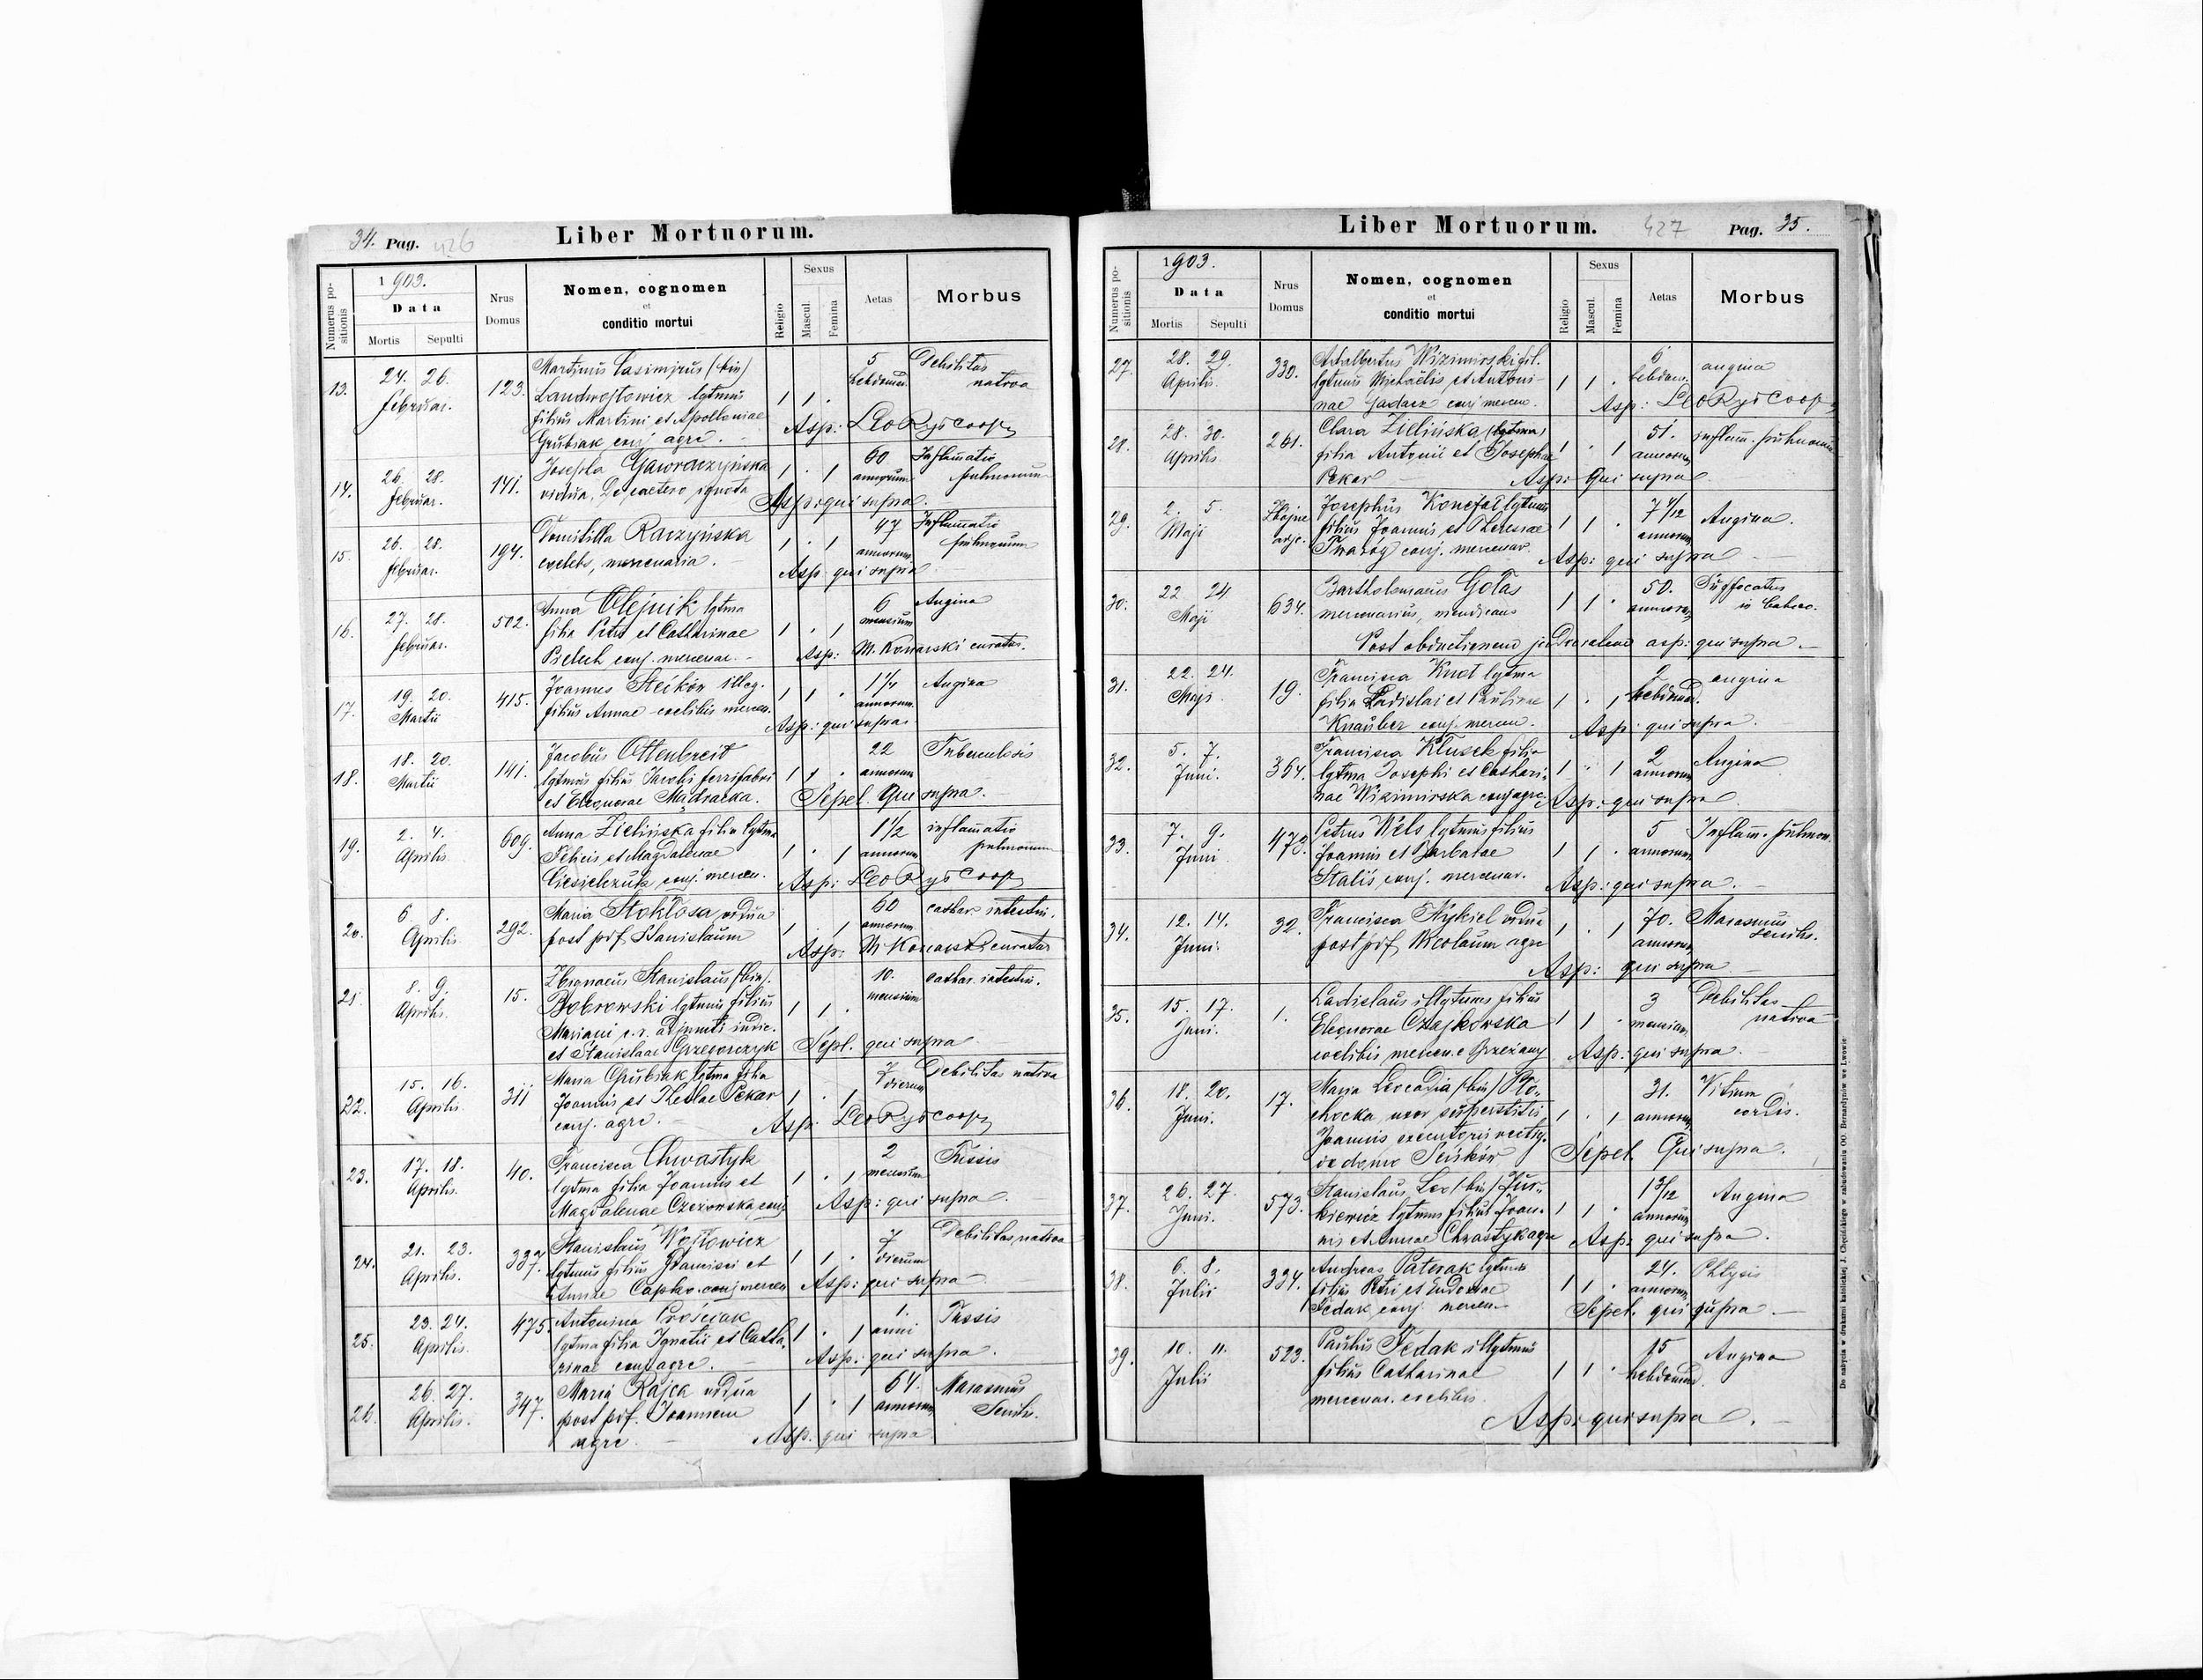 34. Pag. 426
Liber Mortuorum.
Numerus positionis
1903.
Data
Mortis Sepulti
Nrus Domus
Nomen, cognomen
et
conditio mortui
Religio
Sexus
Mascul. Femina
Aetas
Morbus
13. 24. 26. 123. Martinus Casimirus (bin) 5 Debilitas
Februar. Landwojtowicz lgtmus 1 1 . hebdomad. nativa
filius Martini et Apolloniae Asp: Leo Ryś coop
Grubiak conj. agre. —
14. 26. 28. 141. Josepha Gaworczyńska 1 . 1 60 Inflamatio
Februar. vidua, De caetero ignota annorum pulmonum
Asp: qui supra.
15. 26. 28. 194. Domitilla Raczyńska 1 . 1 47 Inflamatio
Februar. coelebs, mercenaria. — annorum pulmonum
Asp: qui supra
16. 27. 28. 502. Anna Olejnik lgtma 6 Angina
Februar. filia Petri et Catharinae 1 . 1 mensium
conj. mercenar. — Asp: M. Konarski curatus.
17. 19. 20. 415. Joannes illeg. 1 1 . 1 1/4 Angina
Martii filius Annae coelibis mercen. annorum
Asp: qui supra.
18. 18. 20. 141. Jacobus Ottenbreit 22 Tuberculosis
Martii lgtmus filius Jacobi ferrifabri 1 1 . annorum
et Eleonorae Mądracka. Sepel. Qui supra. —
19. 2. 4. 609. Anna Zielińska filia lgtma 1 1/2 inflamatio
Aprilis. Felicis et Magdalenae 1 . 1 annorum pulmonum
conj. mercen. Asp: Leo Ryś Coop
20. 6. 8. 292. Maria Stokłosa vidua 60 cathar. intestin.
Aprilis. post pdf Stanislaum 1 . 1 annorum
Asp: M. Konarski curatus
21. 8. 9. 15. Stanislaus (bin). 10. cathar. intestin.
Aprilis. Bobrowski lgtmus filius 1 1 . mensium
Mariani c. r. adjuncti indic.
et Stanislaae Grzegorczyk Sepl. qui supra
22. 15. 16. 311 Maria Grubiak lgtma filia 7 Debilitas nativa
Aprilis. Joannis et Theclae Pekar 1 . 1 dierum
conj. agre. — Asp. Leo Ryś coop
23. 17. 18. 40. Francisca Chwastyk 2 Tussis
Aprilis. lgtma filia Joannis et 1 . 1 mensium
Magdalenae Czezowska conj Asp: qui supra.
24. 21. 23. 337. Stanislaus Wojtowicz 7 Debilitas nativa
Aprilis. lgtmus filius Francisci et 1 1 . dierum
Annae Capko conj mercen Asp: qui supra
25. 23. 24. 475. Antonina Prościak 1. Tussis
Aprilis. lgtma filia Ignatii et Catha- 1 . 1 anni
rinae conj agre. — Asp: qui supra.
26. 26. 27. 347. Maria Rajca vidua 64. Marasmus
Aprilis. post pdf. Joannem 1 . 1 annorum Senilis.
agre. — Asp. qui supra
Liber Mortuorum.
427 Pag. 35.
Numerus positionis
1903.
Data
Mortis Sepulti
Nrus Domus
Nomen, cognomen
et
conditio mortui
Religio
Sexus
Mascul. Femina
Aetas
Morbus
27. 28. 29. 330. Adalbertus Wizimirski fil. angina
Aprilis. lgtmus Michaëlis et Antoni- 1 1 . hebdom.
nae Gadacz conj mercen. Asp: Leo Ryś Coop
28. 28. 30. 261. Clara Zielińska (lgtma) 51. inflam. pulmonum
Aprilis filia Antonii et Josephae 1 . 1 annorum
Pekar — Asp: Qui supra
29. 2. 5. Josephus Konefał lgtmus 7 4/12 Angina.
Maji filius Joannis et Theresiae 1 1 . annorum
Twaróg conj. mercenar. Asp: qui supra —
30. 22 24 634. Bartholomaeus Gołas 50. Suffocatus
Maji mercenarius, mendicans 1 1 . annorum
Post obductionem judicialem asp: qui supra. —
31. 22. 24. 19. Francisca Knot lgtma angina
Maji. filia Ladislai et Paulinae 1 . 1 hebdomad.
Knauber conj. mercen. Asp: qui supra.
32. 5. 7. 364. Francisca Klusek filia 2 Angina
Juni. lgtma Josephi et Cathari- 1 . 1 annorum
nae Wizimirska conj agre. Asp: qui supra
33. 7. 9. 473. Petrus Wels lgtmus filius 5 Inflam. pulmon.
Juni Joannis et Barbarae 1 1 . annorum
Staliś conj. mercenar. Asp: qui supra. —
34. 12. 14. 32. Francisca Nykiel vidua 70. Marasmus
Juni. post pdf. Nicolaum agre 1 . 1 annorum senilis.
Asp: qui supra —
35. 15. 17. 1. Ladislaus illgtmus filius 3 Debilitas
Juni. Eleonorae Czajkowska 1 1 . mensium nativa
coelibis mercen. e Brzeżany Asp: qui supra. —
36. 18. 20. 17. Maria Leocadia (bin) Pło- 31. Vitium
Juni. chocka uxor superstitis 1 . 1 annorum cordis.
Joannis executoris
de domo Sepel. Qui supra.
37. 26. 27. 573. Stanislaus Leo (bin) Jur- Angina
Juni. kiewicz lgtmus filius Joan- 1 1 . annorum
nis et Annae Chwastyk agre Asp: qui supra.
38. 6. 8. 334. Andreas Paterak lgtmus 24. Phtysis
Julii filius Petri et Eudoxiae 1 1 . annorum
Fedak conj. mercen. Sepel. qui supra —
39. 10. 11. 523. Paulus Fedak illgtmus 15 Angina
Julii filius Catharinae 1 1 . hebdomad.
mercenar. coelibis.
Asp: qui supra. —
Do nabycia w drukarni katolickiej J. Chęcińskiego w zabudowaniu OO. Bernardynów we Lwowie